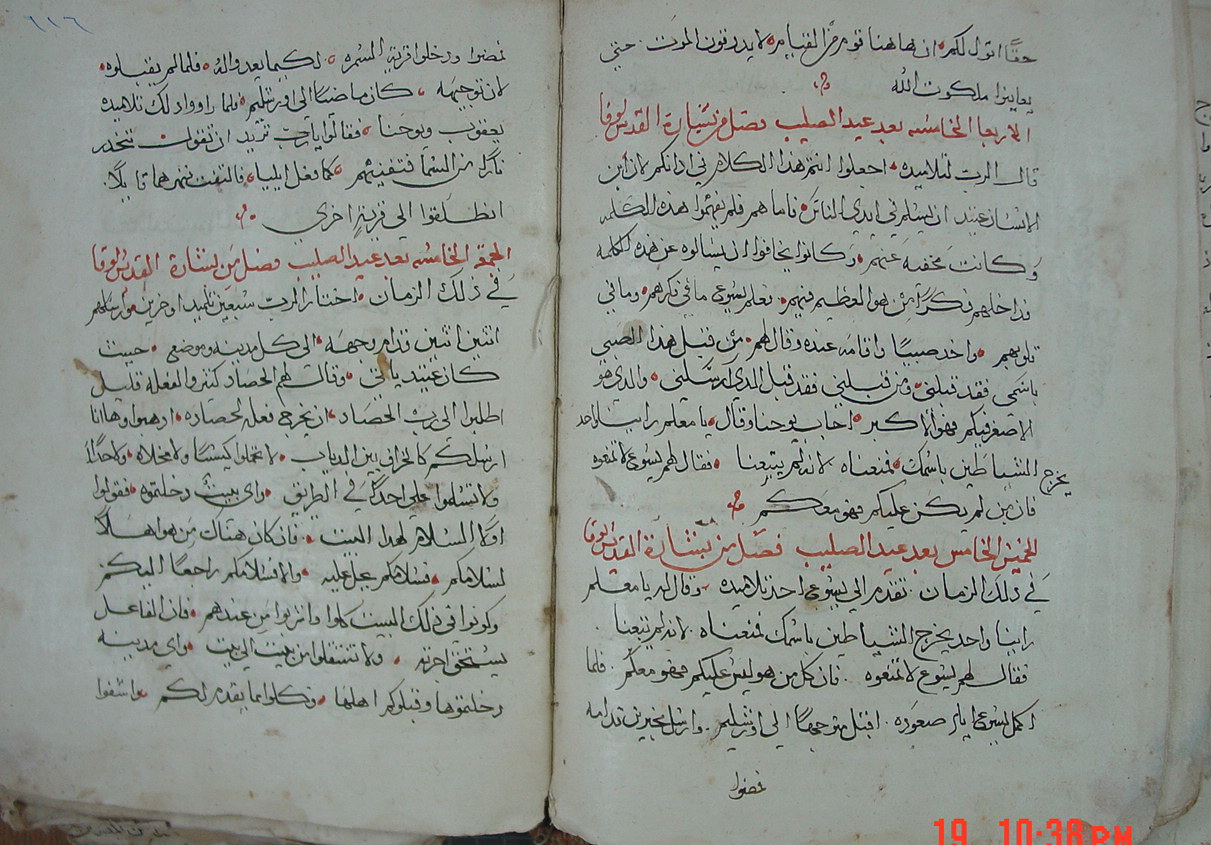 حقًا اقول لكم ان هاهنا قوم من القيام لا يدوقون الموت حتي
يعاينوا ملكوت الله
الاربعا الخامسه بعد عيد الصليب فصل من بشارة القديس لوقا
قال الرب لتلاميده اجعلوا انتم هدا الكلام في ادانكم لان ابن
الانسان عتيد ان يسلم في ايدي الناس فاما هم فلم يفهموا هده الكلمه
وكانت مخفيه عنهم وكانوا يخافوا ان يسالوه عن هده الكلمه
فداخلهم فكرًا من هو العظيم فيهم فعلم يسوع ما في فكرهم وما في
قلوبهم واخد صبيًا واقامه عنده وقال لهم من قبل هدا الصبي
باسمي فقد قبلني ومن قبلني فقد قبل الدي ارسلني والدي هو
الاصغر فيكم فهو الاكبر اجاب يوحنا وقال يا معلم راينا واحد
يخرج الشياطين باسمك فمنعناه لانه لم يتبعنا فقال لهم يسوع لا تمنعوه
فان من لم يكن عليكم فهو معكم
الخميس الخامس بعد عيد الصليب فصل من بشارة القديس لوقا
في دلك الزمان تقدم الي يسوع احد تلاميده وقال له يا معلم
راينا واحد يخرج الشياطين باسمك فمنعناه لانه لم يتبعنا
فقال لهم يسوع لا تمنعوه فان كل من هو ليس عليكم فهو معكم فلما
اكمل يسوع ايام صعوده اقبل متوجهًا الي اورشليم وارسل مخبرين قدامه
فمضوا
٦١٦
فمضوا ودخلوا قرية السمره لكيما يعدوا له فلما لم يقبلوه
لان توجهه كان ماضيًا الي اورشليم فلما راوا دلك تلاميده
يعقوب ويوحنا فقالوا يارب تريد ان نقول تنحدر
نارًا من السما فتفنيهم كما فعل ايليا فالتفت نهرهما قايلًا
انطلقوا الي قرية اخري
الجمعة الخامسه بعد عيد الصليب فصل من بشارة القديس لوقا
في دلك الزمان اختار الرب سبعين تلميد اوخرين وارسلهم
اتنين اتنين قدام وجهه الي كل مدينه وموضع حيث
كان عتيد ياتي وقال لهم الحصاد كتير والفعله قليل
اطلبوا الي رب الحصاد ان يخرج فعله لحصاده ادهبوا وها انا
ارسلكم كالخراف بين الدياب لا تحملوا كيسًا ولا مخلاه ولا حداًا
ولا تسلموا علي احدًا في الطريق واي بيت دخلتموه فقولوا
اولًا السلام لهدا البيت فان كان هناك من هو اهلًا
لسلامكم فسلامكم يحل عليه والا سلامكم راجعًا اليكم
وكونوا في دلك البيت كلوا واشربوا من عندهم فان الفاعل
يستحق اجرته ولا تنتقلوا من بيت الي بيت واي مدينه
دخلتموها وقبلوكم اهلها فكلوا مما يقدم لكم واشفوا
19 10:38 PM